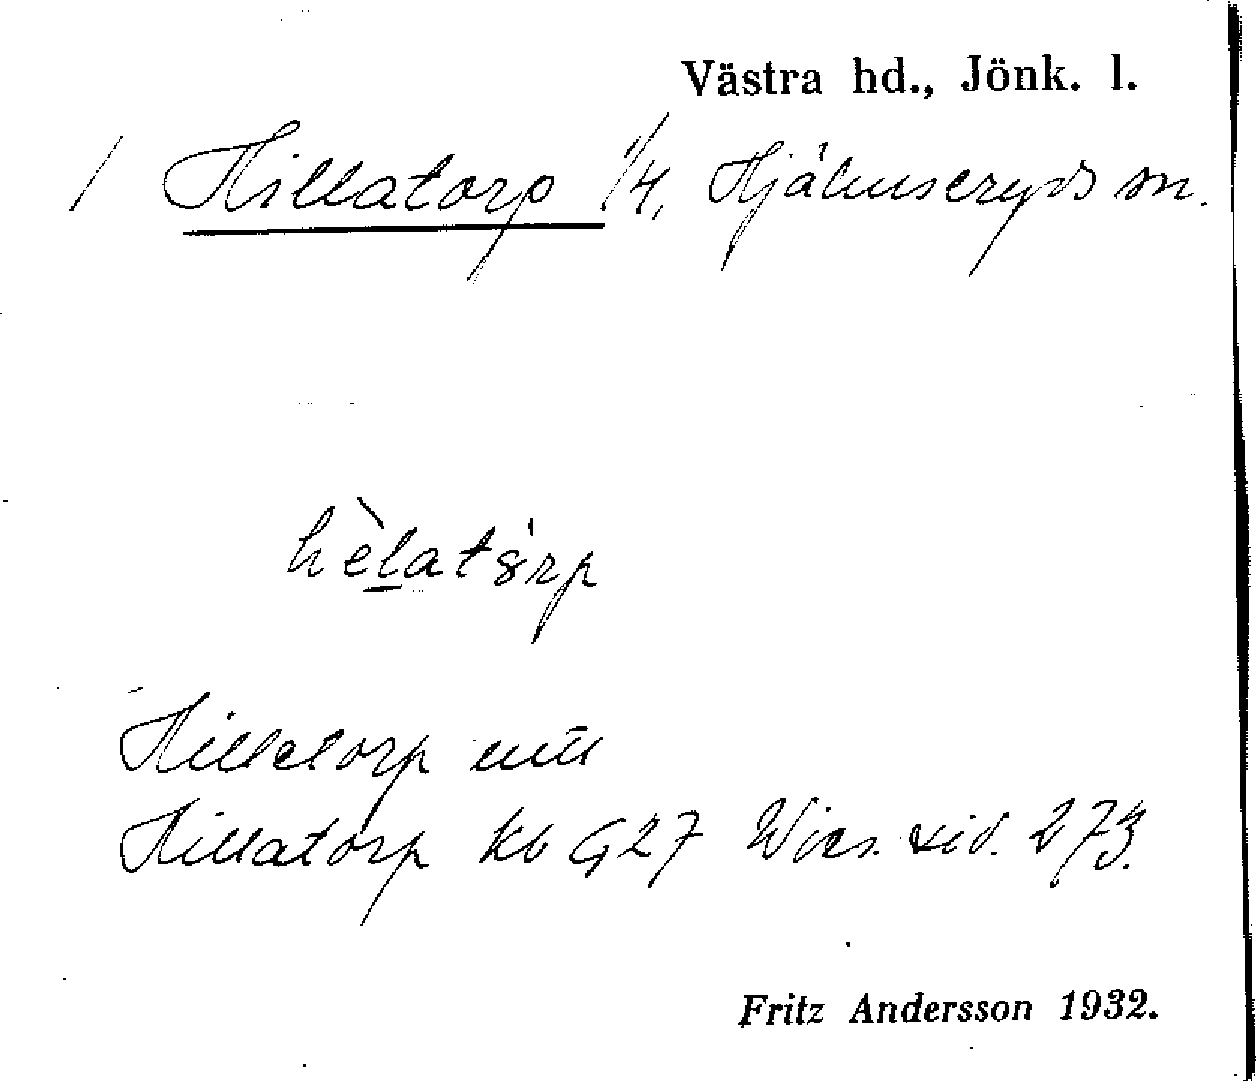 Västra hd., Jönk. l.
/ Hillatorp 1/4, Hjälmseryds sn.
hèlatårp
Hilletorp
Hillatorp kb G27 Wies. sid. 273.
Fritz Andersson 1932.